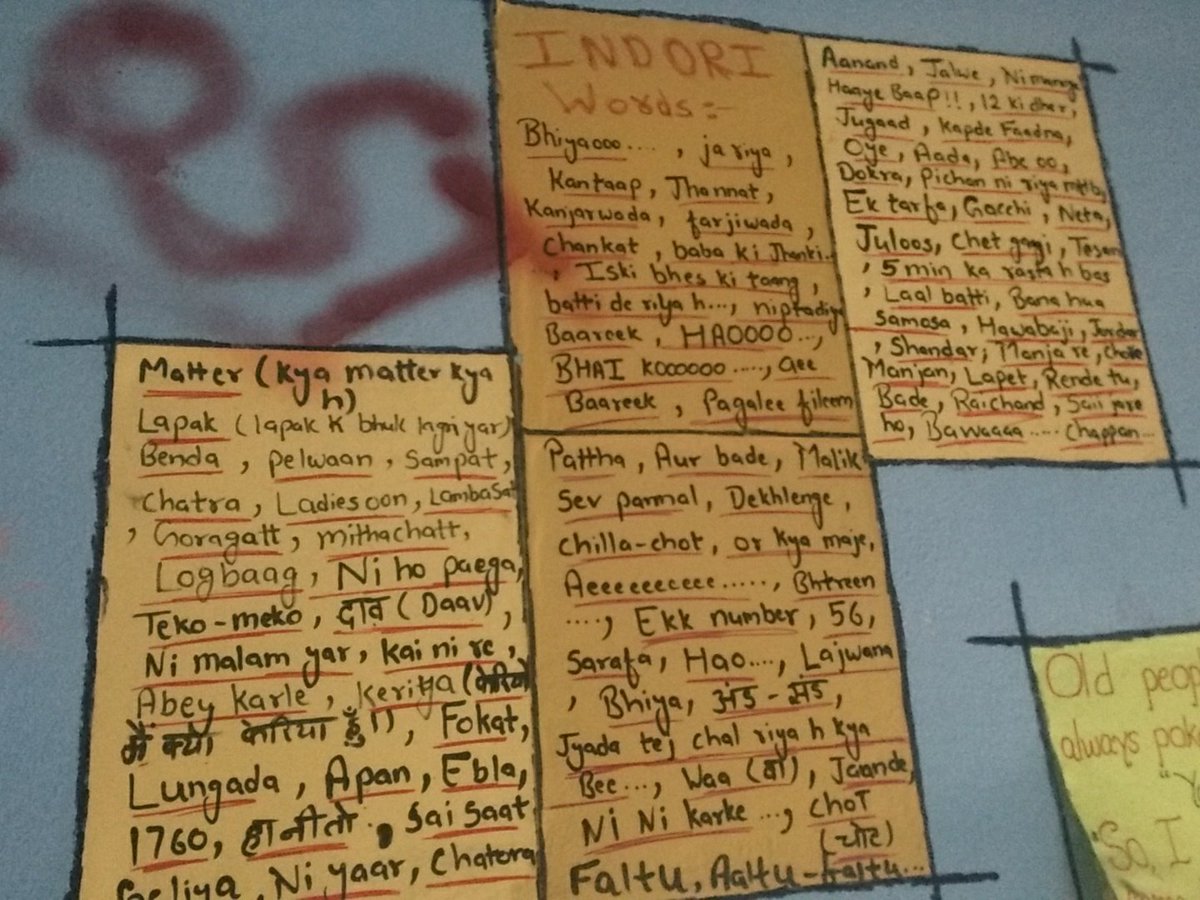 INDORI
Words:-
Bhiyaooo...., ja riya,
Kantaap, Jhannat,
Kanjarwada, farjiwada,
Chankat, baba ki Jhanki..
, Iski bhes ki taang,
batti de riya h..., niptadiya
Baareek, HAOOOO..,
BHAI KOOOOOO....,
Baareek, Pagalee fileem
Aanand, Jalwe,
Haaye Baap!!, 12 ki dhar,
Jugaad, Kapde Faadna,
Oye, Aada, Abe oo,
Dokra, Pichan ni riya
Ek tarfa, Gacchi, Neta,
Juloos, Chet gayi,
, 5 min ka rasta h bas
, Laal batti, Bana hua
Samosa, Hawabaji,
, Shandar, Manja re,
Manjan, Lapet, Rende tu,
Bade, Raichand,
ho, Bawaaaa.... Chappan...
Matter (Kya matter kya
h)
Lapak (lapak k bhuk lagri yar)
Benda, pelwaan, Sampat,
Chatra, Ladiesoon, LambaSat
, Goragatt, mithachatt,
Logbaag, Ni ho paega,
Teko-meko, दाव (Daav),
Ni malam yar, kai ni re,
Abey karle, Keriya (केरियो
मैं क्यो केरिया हूँ।), Fokat,
Lungada, Apan, Ebla,
1760, हानीतो, Sai Saat
Geliya, Ni yaar, Chatora
Pattha, Aur bade, Malik
Sev parmal, Dekhlenge,
Chilla-chot, or Kya maje,
Aeeeeeeceee....., Bhtreen
...., Ekk number, 56,
Sarafa, Hao..., Lajwana
, Bhiya, अंड-संड,
Jyada tej chal riya h kya
Bee..., Waa (वा), Jaande,
Ni Ni karke..., Chot
(चोट)
Faltu, Aaltu-Faltu...
Old peop
always pok
"Y
"So, I